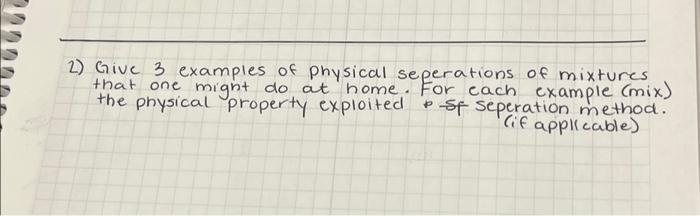 2) Give 3 examples of physical seperations of mixtures
that one might do at home. For each example (mix)
the physical property exploited seperation method.
(if applicable)